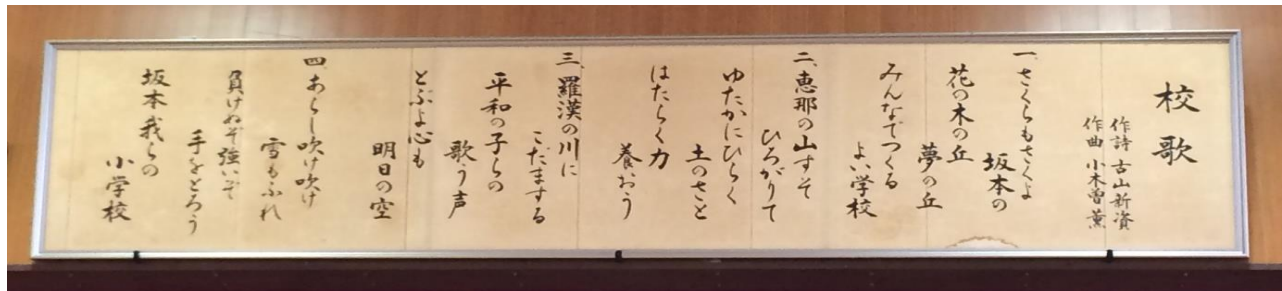 校歌
作詩 古山新資
作曲 小木曽薫
一、さくらもさくよ
坂本の
花の木の丘
夢の丘
みんなでつくる
よい学校
二、恵那の山すそ
ひろがりて
ゆたかにひらく
土のさと
はたらく力
養おう
三、羅漢の川に
こだまする
平和の子らの
歌う声
とぶよ心も
明日の空
四、あらし吹け吹け
雪もふれ
負けぬぞ強いぞ
手をとろう
坂本我らの
小学校